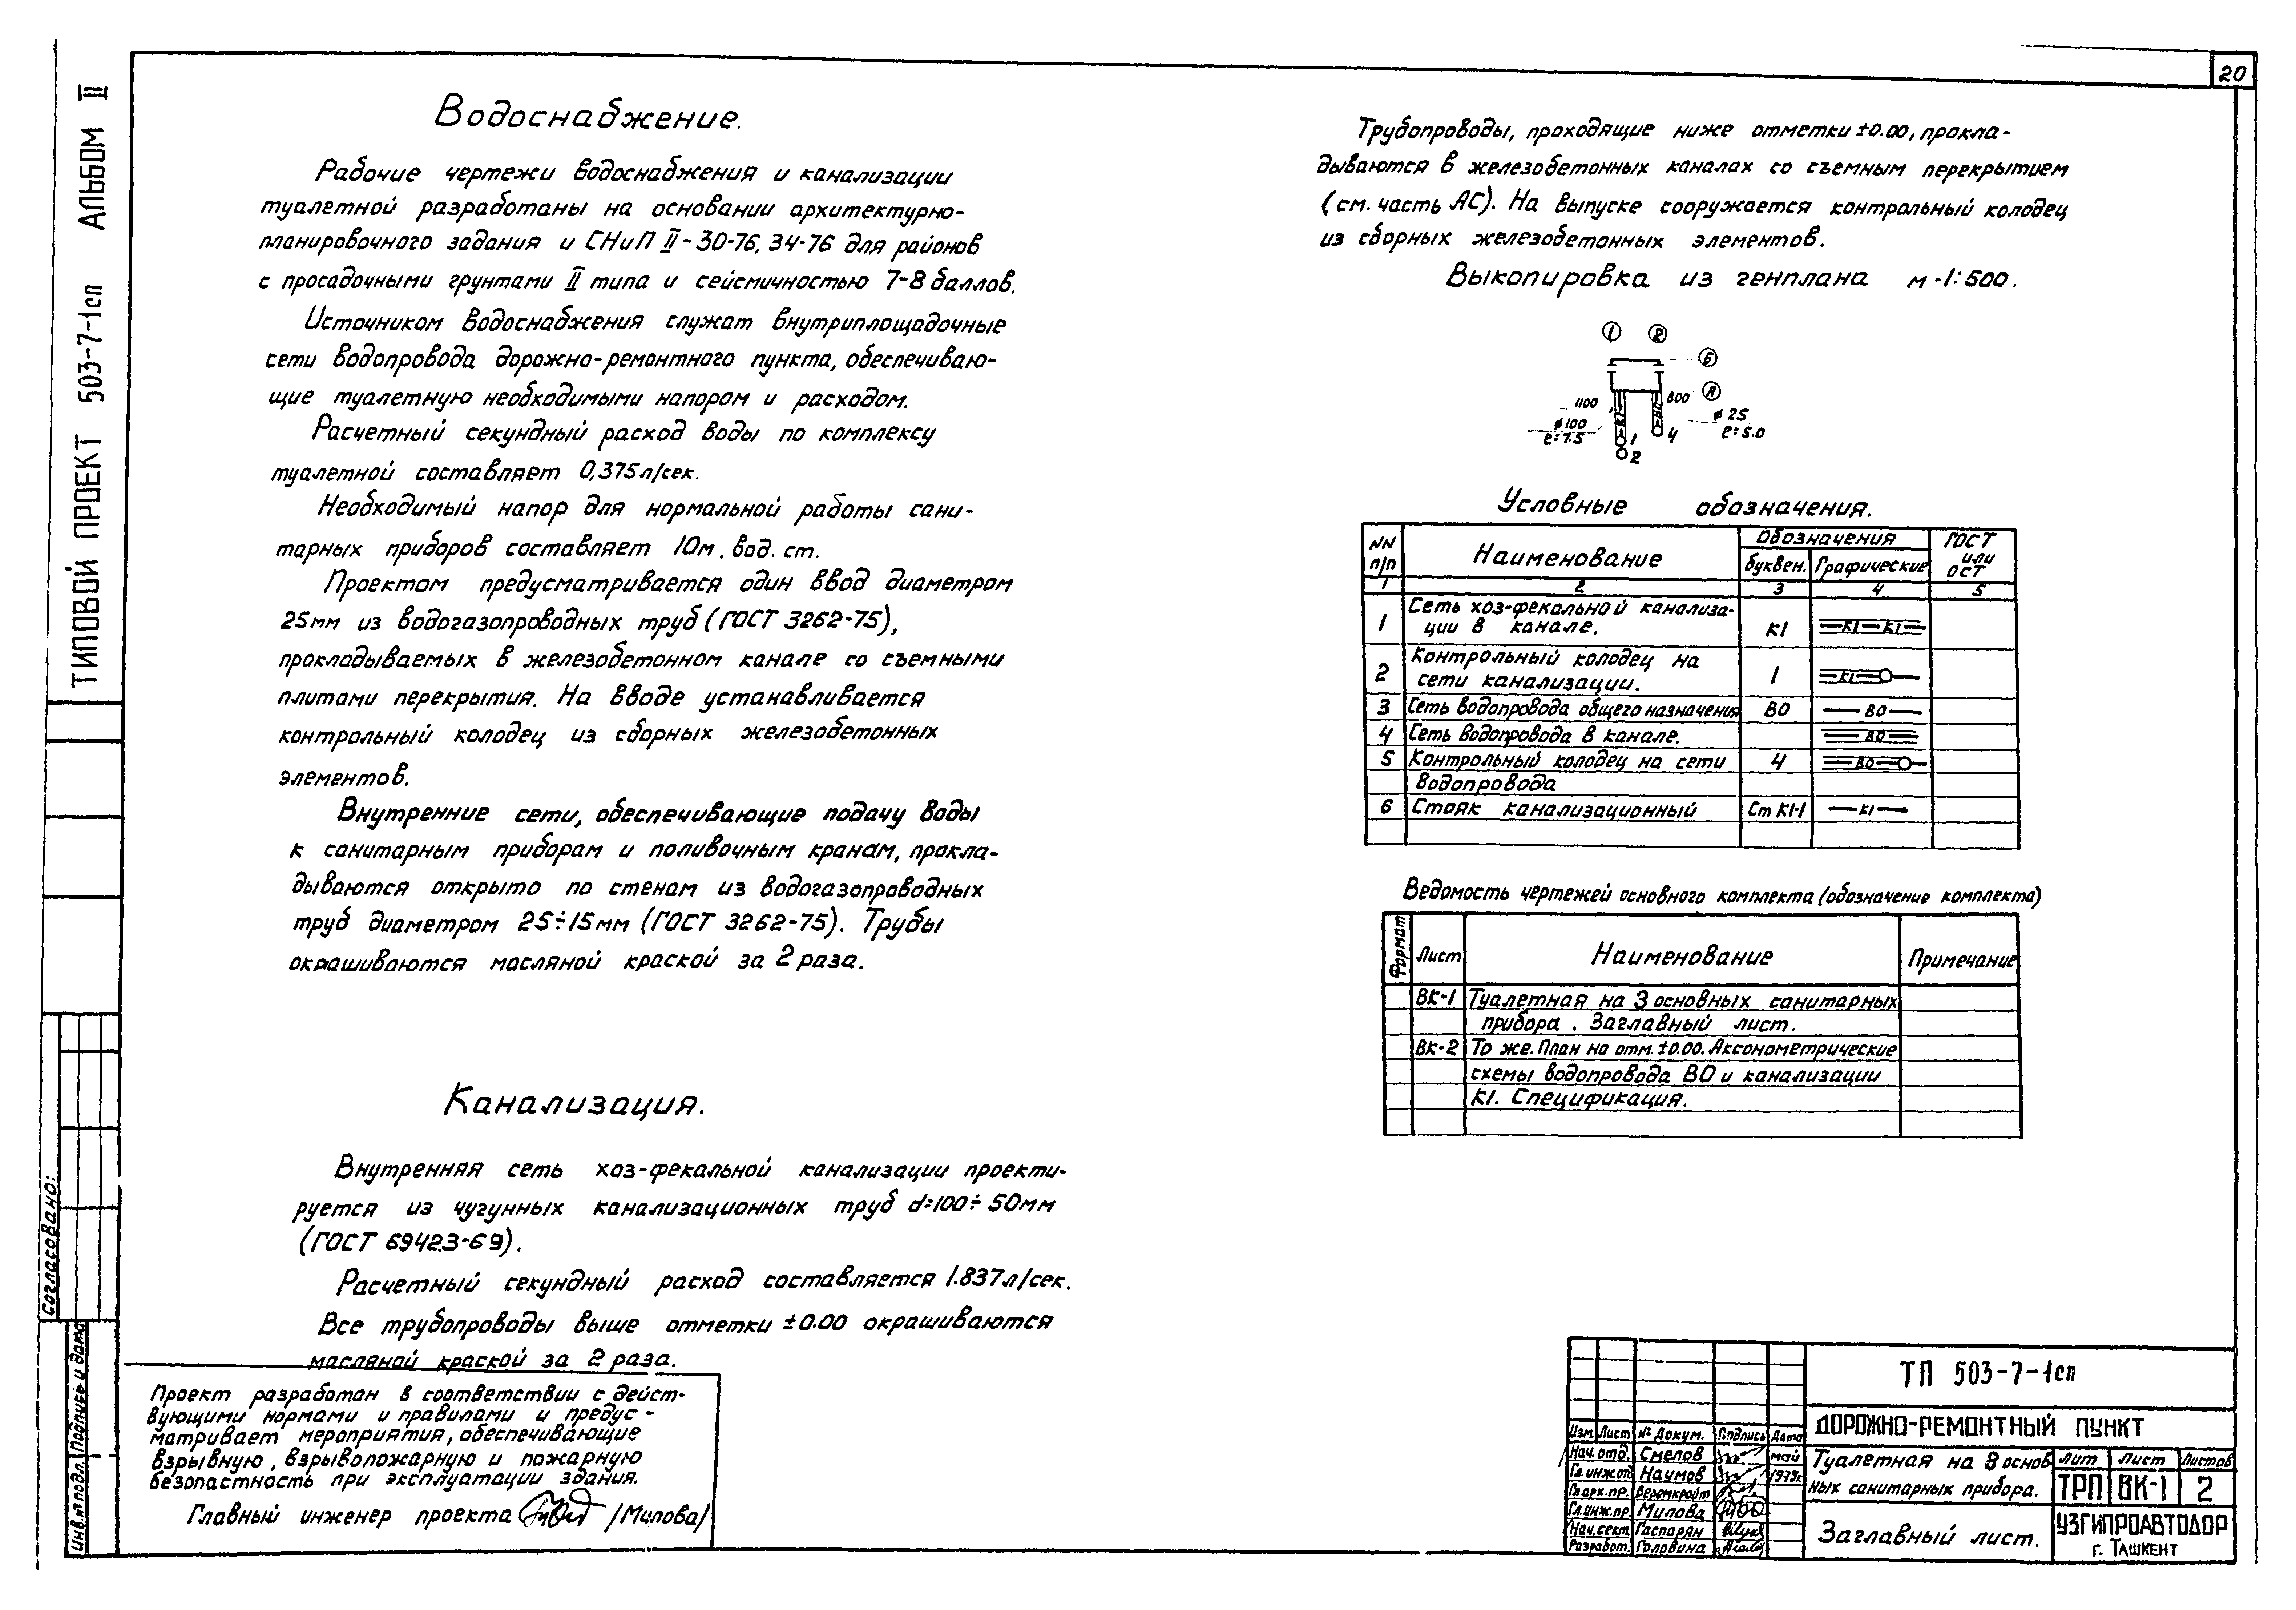 20
ТИПОВОЙ ПРОЕКТ 503-7-1сп АЛЬБОМ II
Водоснабжение.
Рабочие чертежи водоснабжения и канализации
туалетной разработаны на основании архитектурно-
планировочного задания и СНиП II-30-76, 34-76 для районов
с просадочными грунтами II типа и сейсмичностью 7-8 баллов.
Источником водоснабжения служат внутриплощадочные
сети водопровода дорожно-ремонтного пункта, обеспечиваю-
щие туалетную необходимыми напором и расходом.
Расчетный секундный расход воды по комплексу
туалетной составляет 0,375л/сек.
Необходимый напор для нормальной работы сани-
тарных приборов составляет 10м. вод. ст.
Проектом предусматривается один ввод диаметром
25мм из водогазопроводных труб (ГОСТ 3262-75),
прокладываемых в железобетонном канале со съемными
плитами перекрытия. На вводе устанавливается
контрольный колодец из сборных железобетонных
элементов.
Внутренние сети, обеспечивающие подачу воды
к санитарным приборам и поливочным кранам, прокла-
дываются открыто по стенам из водогазопроводных
труб диаметром 25÷15мм (ГОСТ 3262-75). Трубы
окрашиваются масляной краской за 2 раза.
Канализация.
Внутренняя сеть хоз-фекальной канализации проекти-
руется из чугунных канализационных труб d=100÷50мм
(ГОСТ 6942.3-69).
Расчетный секундный расход составляется 1.837л/сек.
Все трубопроводы выше отметки ±0.00 окрашиваются
масляной краской за 2 раза.
Проект разработан в соответствии с дейст-
вующими нормами и правилами и предус-
матривает мероприятия, обеспечивающие
взрывную, взрывопожарную и пожарную
безопастность при эксплуатации здания.
Главный инженер проекта /Милова/
Трубопроводы, проходящие ниже отметки ±0.00, прокла-
дываются в железобетонных каналах со съемным перекрытием
(см. часть АС). На выпуске сооружается контрольный колодец
из сборных железобетонных элементов.
Выкопировка из генплана м-1:500.
1 2
Б
А
1100 800
ø100 ø25
ℓ=7.5 ℓ=5.0
К1 ВО
1 4
2
Условные обозначения.
NN п/п Наименование Обозначения ГОСТ или ОСТ
буквен. Графические
1 2 3 4 5
1 Сеть хоз-фекальной канализа-
ции в канале. К1 К1 К1
2 Контрольный колодец на
сети канализации. 1 К1
3 Сеть водопровода общего назначения ВО ВО
4 Сеть водопровода в канале. ВО
5 Контрольный колодец на сети 4 ВО
водопровода
6 Стояк канализационный Ст К1-1 К1
Ведомость чертежей основного комплекта (обозначение комплекта)
Формат Лист Наименование Примечание
ВК-1 Туалетная на 3 основных санитарных
прибора. Заглавный лист.
ВК-2 То же. План на отм. ±0.00. Аксонометрические
схемы водопровода ВО и канализации
К1. Спецификация.
Согласовано:
Инв.№подл. Подпись и дата
ТП 503-7-1сп
ДОРОЖНО-РЕМОНТНЫЙ ПУНКТ
Изм. Лист № Докум. Подпись Дата
Нач.отд. Смелов май
Гл.инж.отд Наумов 1979г
Гл.арх.пр.
Гл.инж.пр. Милова
Нач.сект. Гаспарян
Разработ. Головина
Туалетная на 3 основ
ных санитарных прибора.
Лит Лист Листов
ТРП ВК-1 2
Заглавный лист.
УЗГИПРОАВТОДОР
г. Ташкент